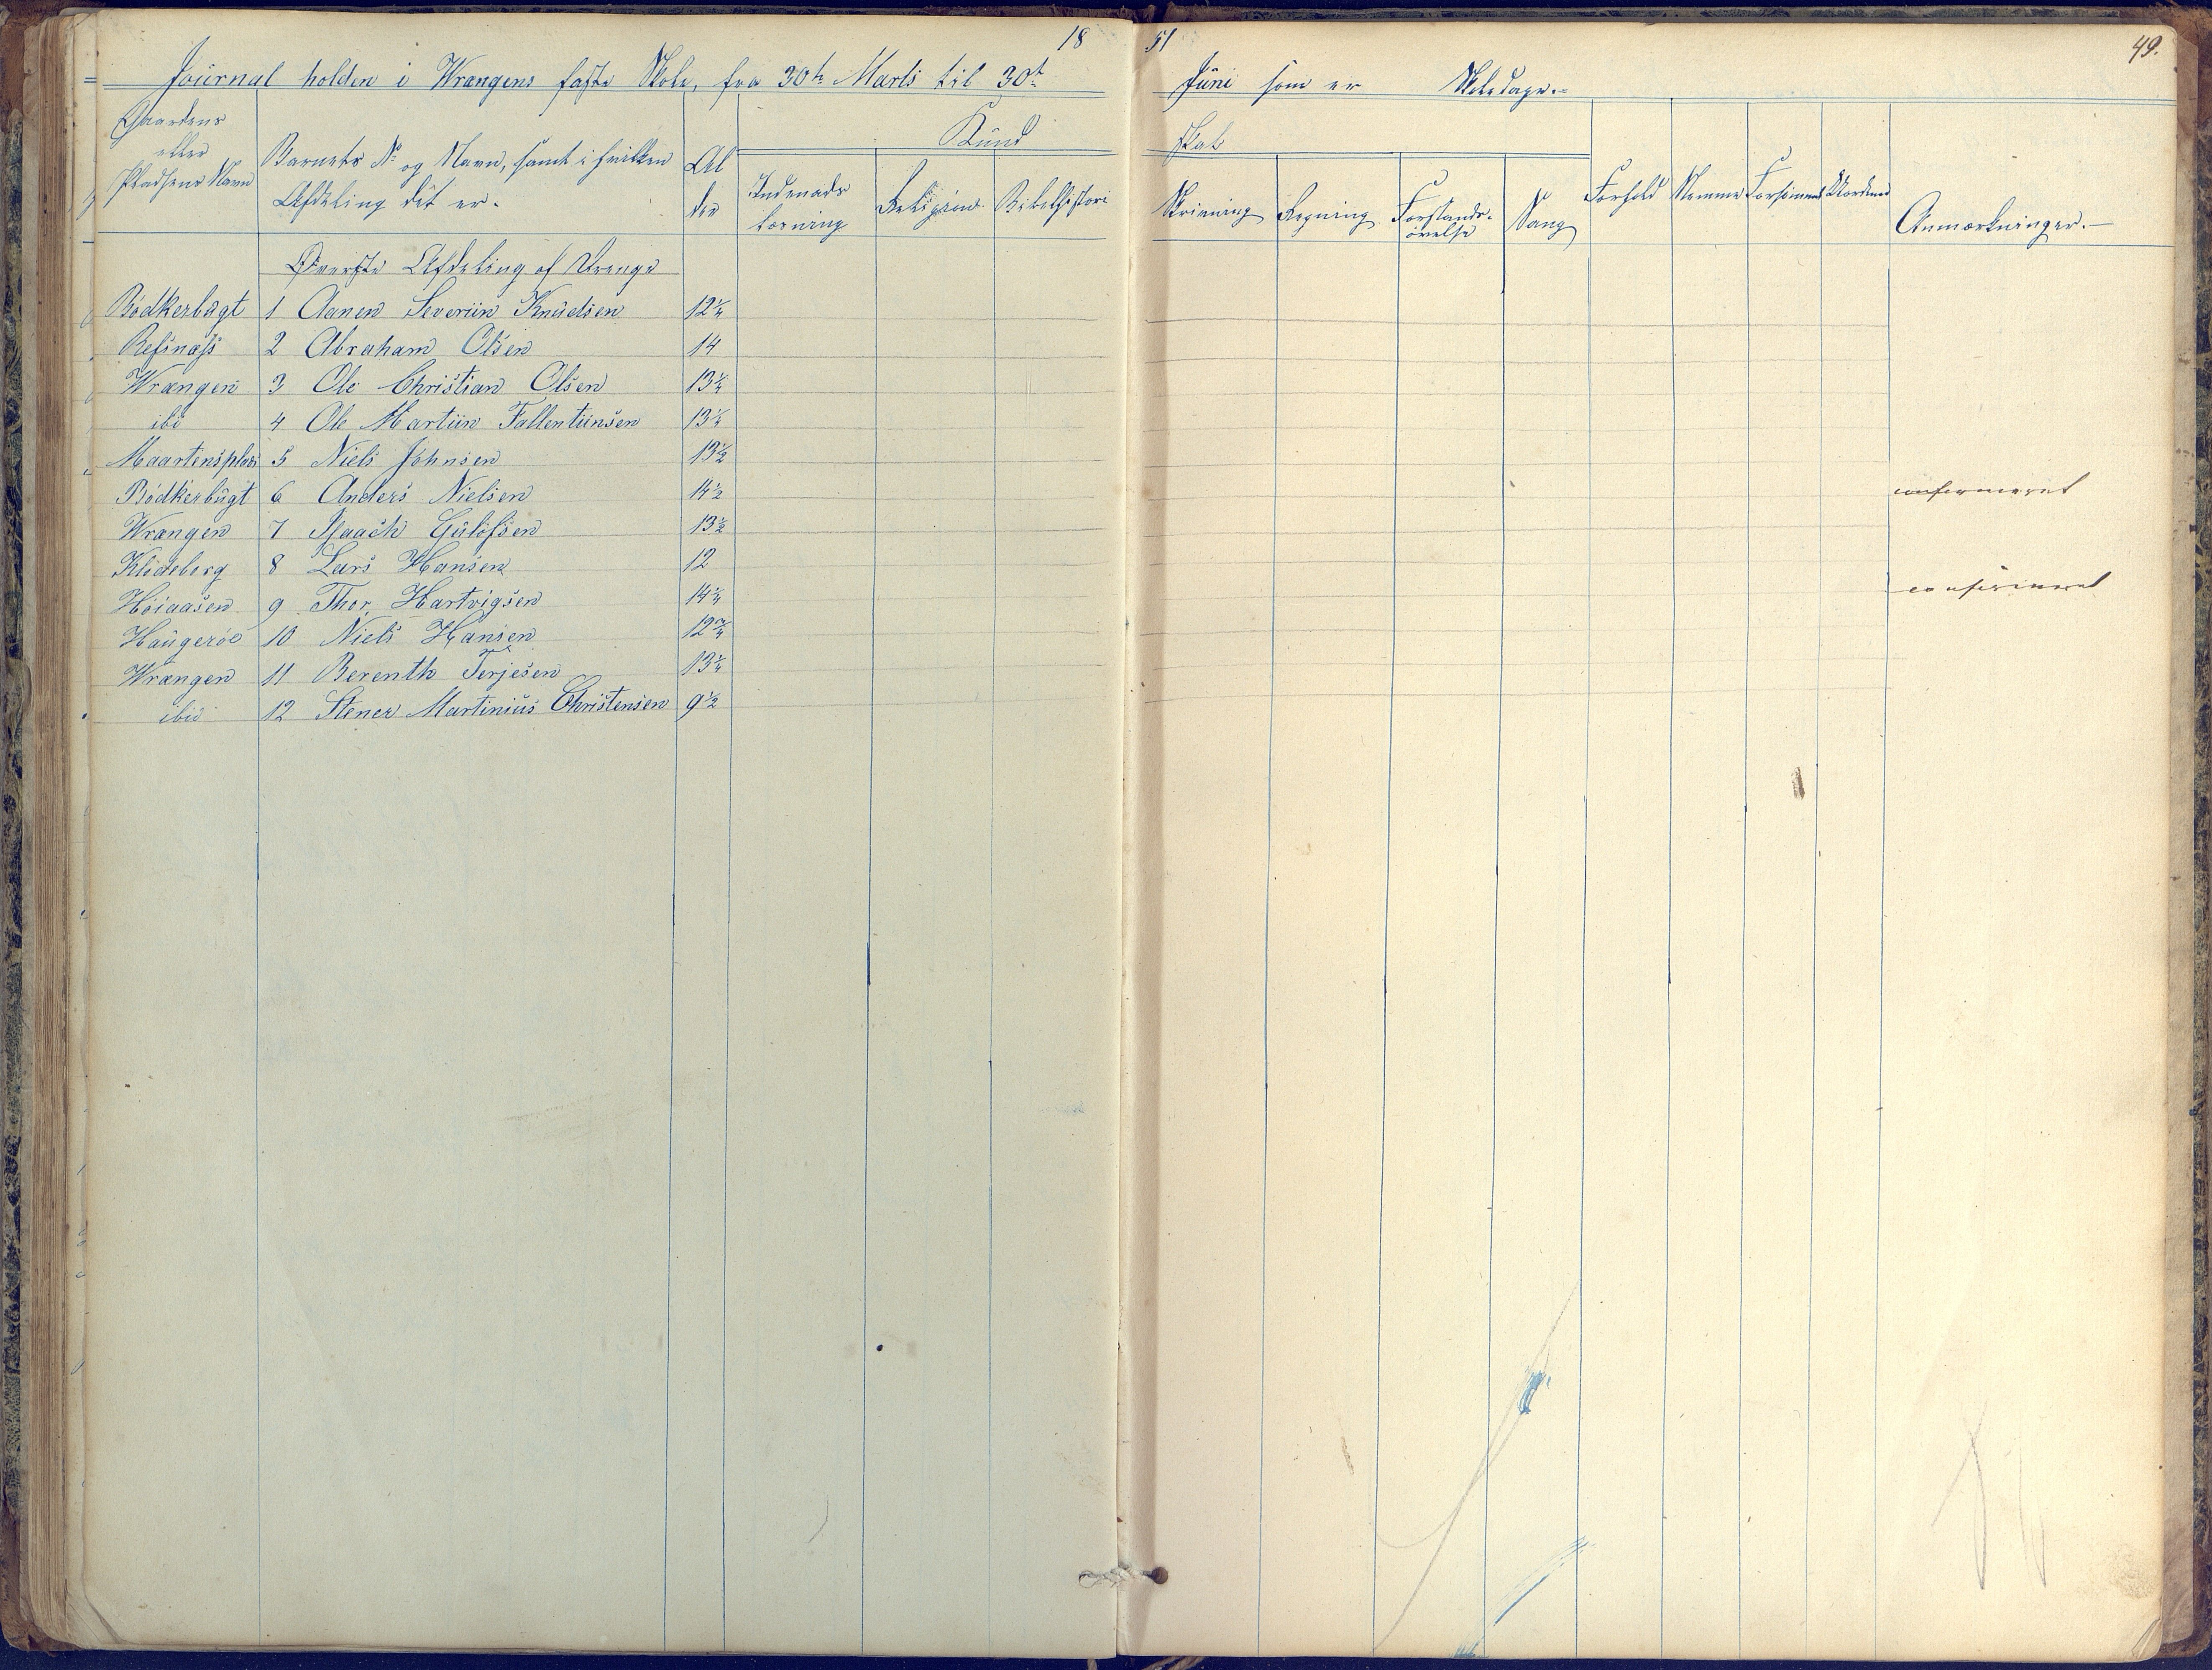 18 51
49.
Journal holden i Wrangens faste Skole, fra 30te Marts til 30t Juni som er Skoledage.
Gaardens eller Pladsens Navn
Barnets No og Navn, samt i hvilken Afdeling det er.
Alder
Kundskab
Indenadslæsning
Religion
Bibelhistori
Skrivning
Regning
Forstandsøvelse
Sang
Forhold
Nemme
Anmærkninger.
Øverste Afdeling af Drenge
Bödkerbugt 1 Aanen Severiin Knudsen 12¼
Refsnæss 2 Abraham Olsen 14
Wrangen 3 Ole Christian Olsen 13¼
ibi 4 Ole Martiin Fallentiinsen 13¼
Maartensplads 5 Niels Johnsen 13½
Bödkerbugt 6 Anders Nielsen 14½ confirmeret
Wrangen 7 Isaach Gulofsen 13½
Klödeberg 8 Lars Hansen 12
Höiaasen 9 Thor Hartvigsen 14¼ confirmeret
Haugeröe 10 Niels Hansen 12¾
Wrangen 11 Berenth Terjesen 13¼
ibid 12 Stener Martinius Christensen 9½